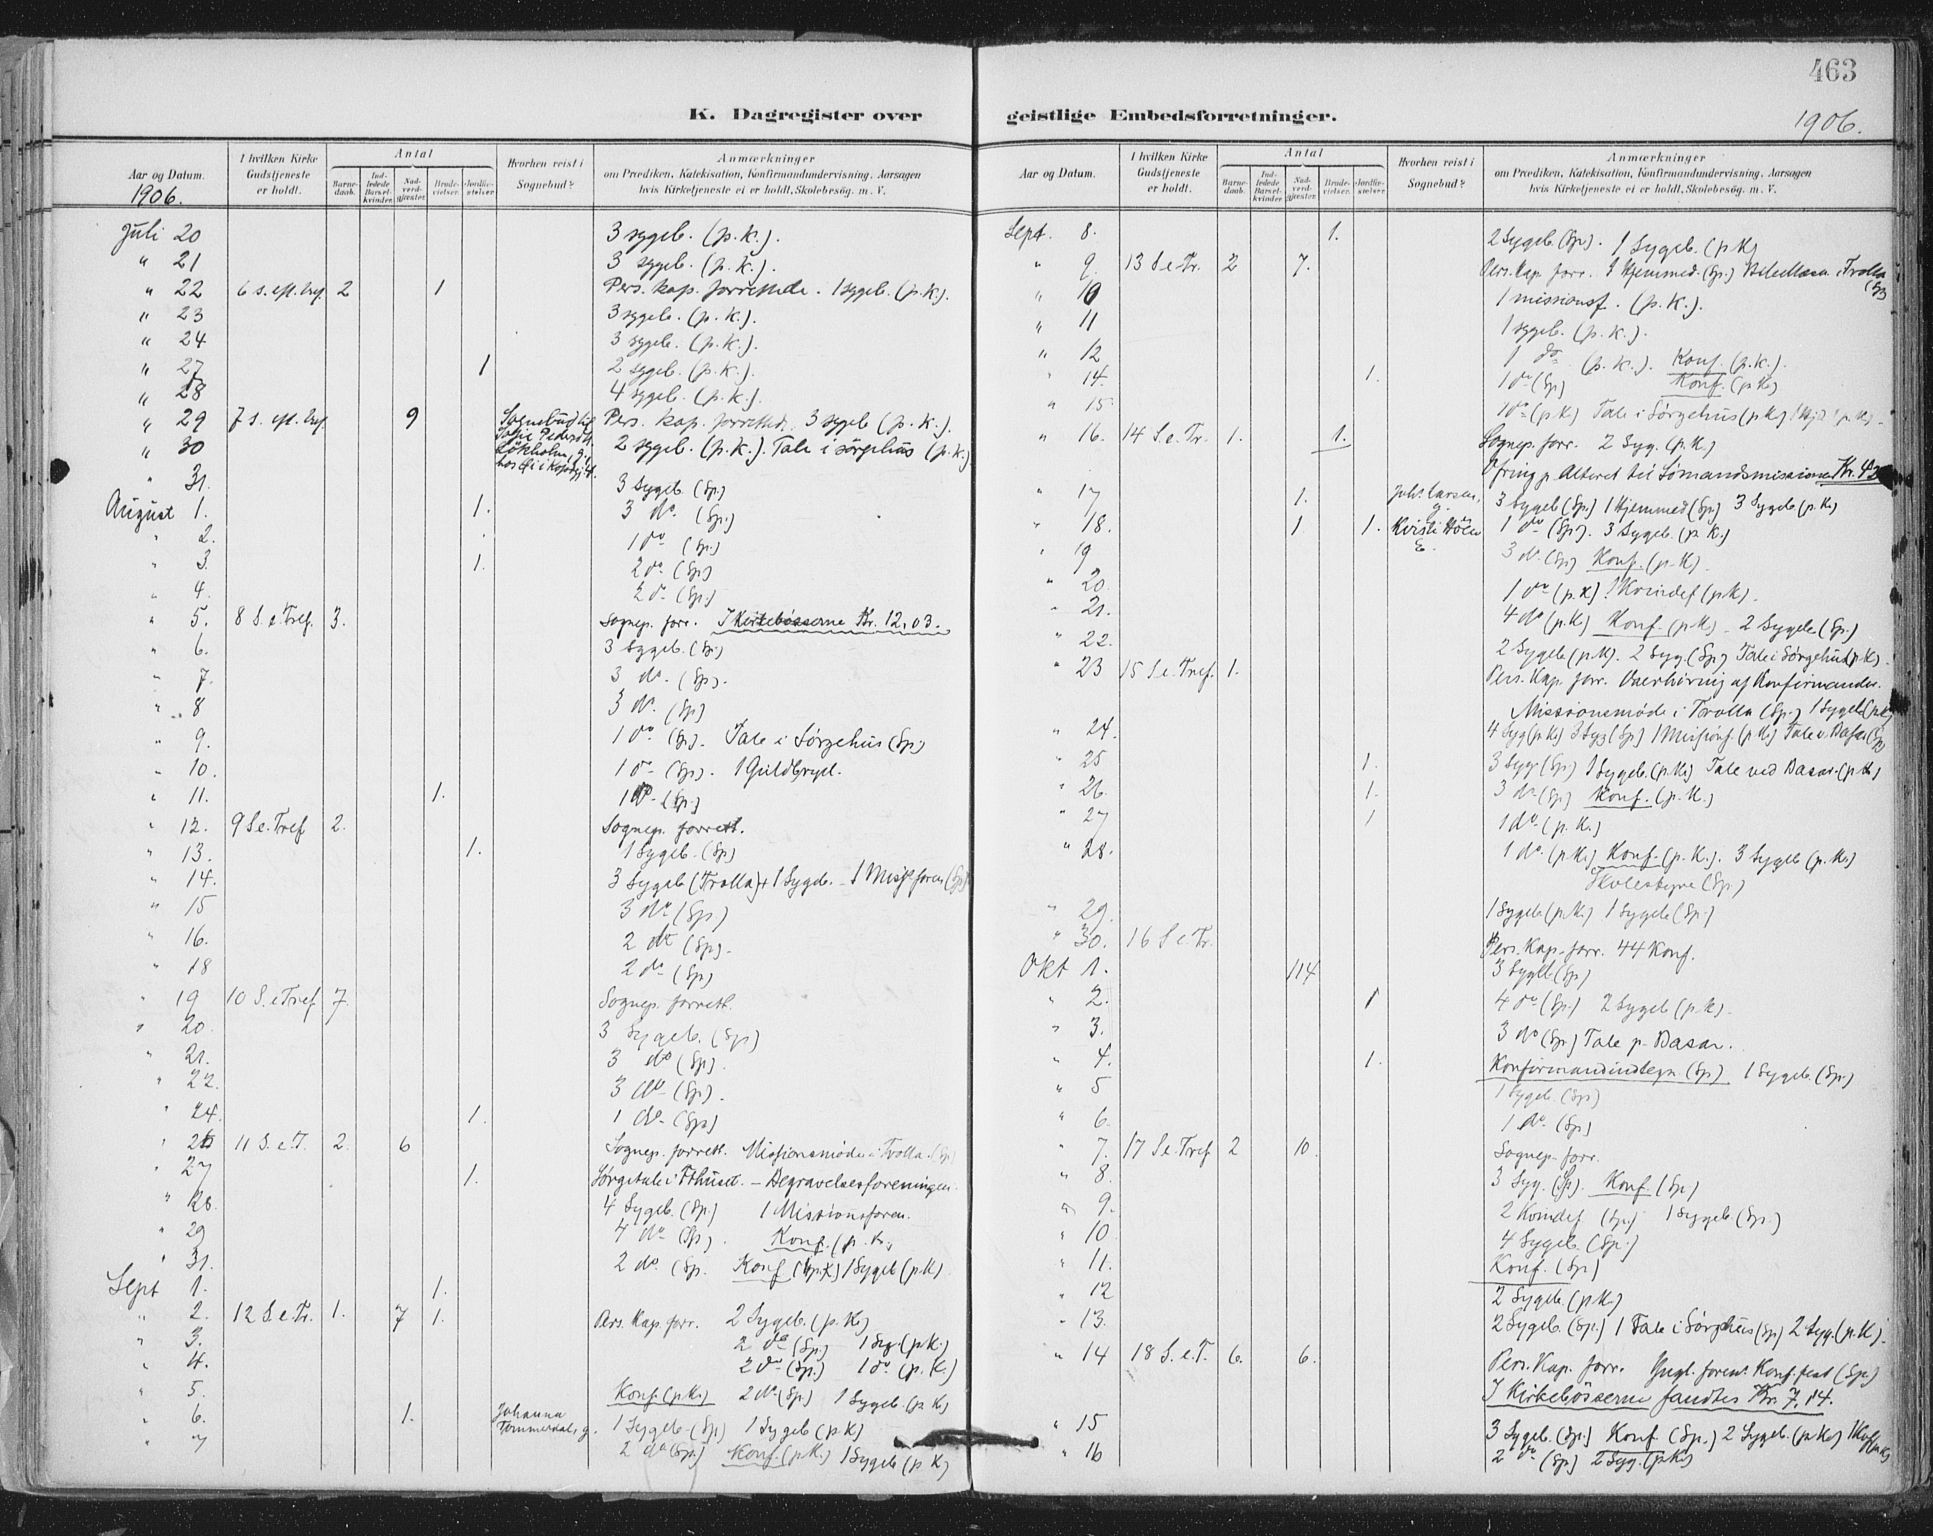 463
K. Dagregister over geistlige Embedsforretninger.
1906.
Aar og Datum. I hvilken Kirke Gudstjeneste er holdt. Antal Barnedaab. Indledede Barselkvinder. Nadverdgjester. Brudevielser. Jordfæstelser. Hvorhen reist i Sognebud? Anmærkninger om Prædiken, Katekisation, Konfirmandundervisning, Aarsagen hvis Kirketjeneste ei er holdt, Skolebesøg. m. V.
1906.
Juli 20 3 sygeb. (p.k.).
" 21 3 sygeb. (p.k.).
" 22 6 s. eft. tref. 2 1 Pers. kap. forrettede. 1 sygeb. (p.k.).
" 23 3 sygeb. (p.k.).
" 24 3 sygeb. (p.k.).
" 27 1 2 sygeb. (p.k.).
" 28 4 sygeb. (p.k.).
" 29 7 s. eft. tref. 9 Sognebud til Pers. kap. forretted. 3 sygeb (p.k.).
" 30 2 sygeb. (p.k.). Tale i sørgehus (p.k.)
" 31. 3 Sygeb. (Sp)
August 1. 1. 3 do. (Sp.)
" 2. 1 do (Sp.)
" 3. 1. 2 do (Sp)
" 4. 2 do (Sp)
" 5. 8 S. e. Tref. 3. Sognep. forr. I Kirkebøsserne Kr. 12,03.
" 6. 3 Sygeb. (Sp.)
" 7. 3 do. (Sp).
" 8 3 do. (Sp)
" 9. 1 do (Sp). Tale i Sørgehus (Sp.)
" 10. 1 do (Sp). 1 Guldbryl.
" 11. 1. 1 do (Sp.)
" 12. 9 S e. Tref 2. Sognep. forrett.
" 13. 1. 1 Sygeb. (Sp)
" 14. 3 Sygeb (Trolla) + 1 Sygeb. - 1 Miss.foren (Sp)
" 15 3 do (Sp)
" 16. 2 do (Sp).
" 18 2 do (Sp)
" 19 10 S. e Tref 7. Sognep. forrett.
" 20. 3 Sygeb. (Sp)
" 21. 3 do (Sp).
" 22. 3 do (Sp).
" 24. 1. 1 do. (Sp)
" 26 11 S. e. T. 2. 6 Sognep. forrett. Missionsmøde i Trolla. (Sp)
" 27 1. Sørgetale i - Begravelsesforeningen.
" 28. 4 Sygeb. (Sp) 1 Missionsforen.
" 29 4 do (Sp). Konf. (p.k.)
" 31. 2 do. (Sp. Konf (p.k) 1 Sygeb (p.k).
Sept 1. 1.
" 2. 12 S. e Tr. 1. 7 1. Pers. Kap. forr. 2 Sygeb. (p.K)
" 3. 2 do (Sp) 1 Syg (p.K)
" 4. 2 do (Sp.) 1 do (p.K.)
" 5. Konf. (p.K.) 2 do. (Sp) 1 Sygeb. (p.K)
" 6. 1. Johanna Tømmerdal, g. 1 Sygeb. (Sp) 1 Sygeb (p.K)
" 7 2 do (Sp.) Konf. (p.K.) 1 Sygeb (p.K)
Aar og Datum. I hvilken Kirke Gudstjeneste er holdt. Antal Barnedaab. Indledede Barselkvinder. Nadverdgjester. Brudevielser. Jordfæstelser. Hvorhen reist i Sognebud? Anmærkninger om Prædiken, Katekisation, Konfirmandundervisning, Aarsagen hvis Kirketjeneste ei er holdt, Skolebesøg. m. V.
Sept. 8. 1. 2 Sygeb. (Sp). 1 Sygeb. (p.K)
" 9. 13 S e. Tr. 2 7. Pers. Kap. forr. 1 Hjemmed. (Sp.) i Trolla (Sp)
" 10 1 missionsf. (p.k.).
" 11 1 sygeb. (p.k.).
" 12 1 do (p.k.). Konf. (p.k.).
" 14. 1. 1 do (Sp) Konf. (p.K)
" 15. 1 do (p.K) Tale i Sørgehus (p.K)
" 16. 14 S e. Tr. 1. 1. Sognep. forr. 2 Syg. (p.K.)
Ofring p. Alteret til Sømandsmissionen Kr.
" 17 1. Joh. Larsen, g. 3 Sygeb (Sp) 1 Hjemmed (Sp) 3 Sygeb (p.K.)
" 18. 1 1. 1 do (Sp). 3 Sygeb. (p.K.)
" 19 3 do. (Sp) Konf. (p.K).
" 20. 1 do (p.K) 1 Kvindef (p.K).
" 21. 4 do (p.K) Konf. (p.K.) - 2 Sygeb (Sp.)
" 22. 2 Sygeb (p.K). 2 Syg. (Sp) Tale i Sørgehus (p.K).
" 23 15 S e. Tref. 1. Pers. Kap. forr. Overhøring af Konfirmander.
Missionsmøde i Trolla (Sp.) 1 Sygeb (p.K)
" 24. 4 Syg (p.K) 3 Syg (Sp) 1 Missionsf. (p.K) Tale v. Basar (Sp)
" 25 1. 3 Syg. (Sp) 1 Sygeb. (p.K) Tale ved Basar. (p.K)
" 26. 1. 3 do (Sp) Konf. (p.K.)
" 27 1 1 do. (p.K.)
" 28. 1 do. (p.K.) Konf. (p.K.). 3 Sygeb (p.K.)
Skolestyre (Sp.)
" 29. 1 Sygeb (p.K.) 1 Sygeb (Sp.)
" 30. 16 S e. Tr. Pers. Kap. forr. 44 Konf.
Okt 1. 114 3 Sygeb (Sp)
" 2. 1 4 do (Sp.) 2 Sygeb (p.K).
" 3. 3 do (Sp) Tale p. Basar.
" 4. 1. Konfirmandindtegn. (Sp) 1 Sygeb. (Sp.)
" 5 1 Sygeb. (Sp)
" 6. 1 do. (Sp)
" 7. 17 S e. Tref 2 10. Sognep. forr.
" 8. 3 Syg. (Sp). Konf. (Sp)
" 9. 2 Kvindef (Sp.) 1 Sygeb. (Sp.)
" 10. 4 Sygeb. (Sp.)
" 11. Konf. (Sp)
" 12 2 Sygeb. (p.K.)
" 13. 2 Sygeb. (Sp.) 1 Tale i Sørgehus (Sp) 2 Syg. (p.K).
" 14 18 S. e. T. 6. 6. Pers. Kap. forr. Yngl. foren. Konf. fest (Sp.)
I Kirkebøsserne fandtes Kr. 7,14.
" 15 3 Sygeb. (Sp.) Konf. (Sp.) 2 Sygeb. (p.K.)
" 16 2 do (Sp) 2 Syg. (p.K)